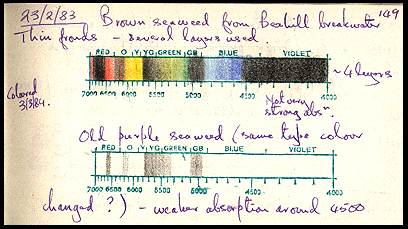 149
23/2/83 Brown seaweed from Bexhill breakwater
Thin fronds - several layers used
RED O Y YG GREEN GB BLUE VIOLET
~ 4 layers
7000 6500 6000 5500 5000 4500 4000
Colored 3/3/84.
Not very strong absn.
Old purple seaweed (same type colour
RED O Y YG GREEN GB BLUE VIOLET
7000 6500 6000 5500 5000 4500 4000
changed?) - weaker absorption around 4500